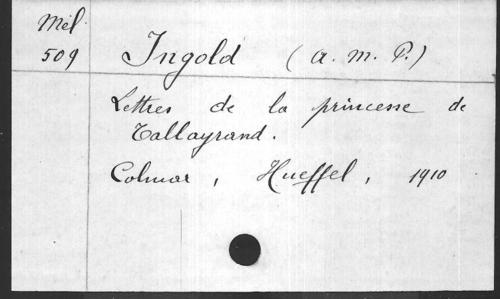 Mél. 509
Ingold (A. M. P.)
Lettres de la princesse de
Tallayrand.
Colmar, Hueffel, 1910